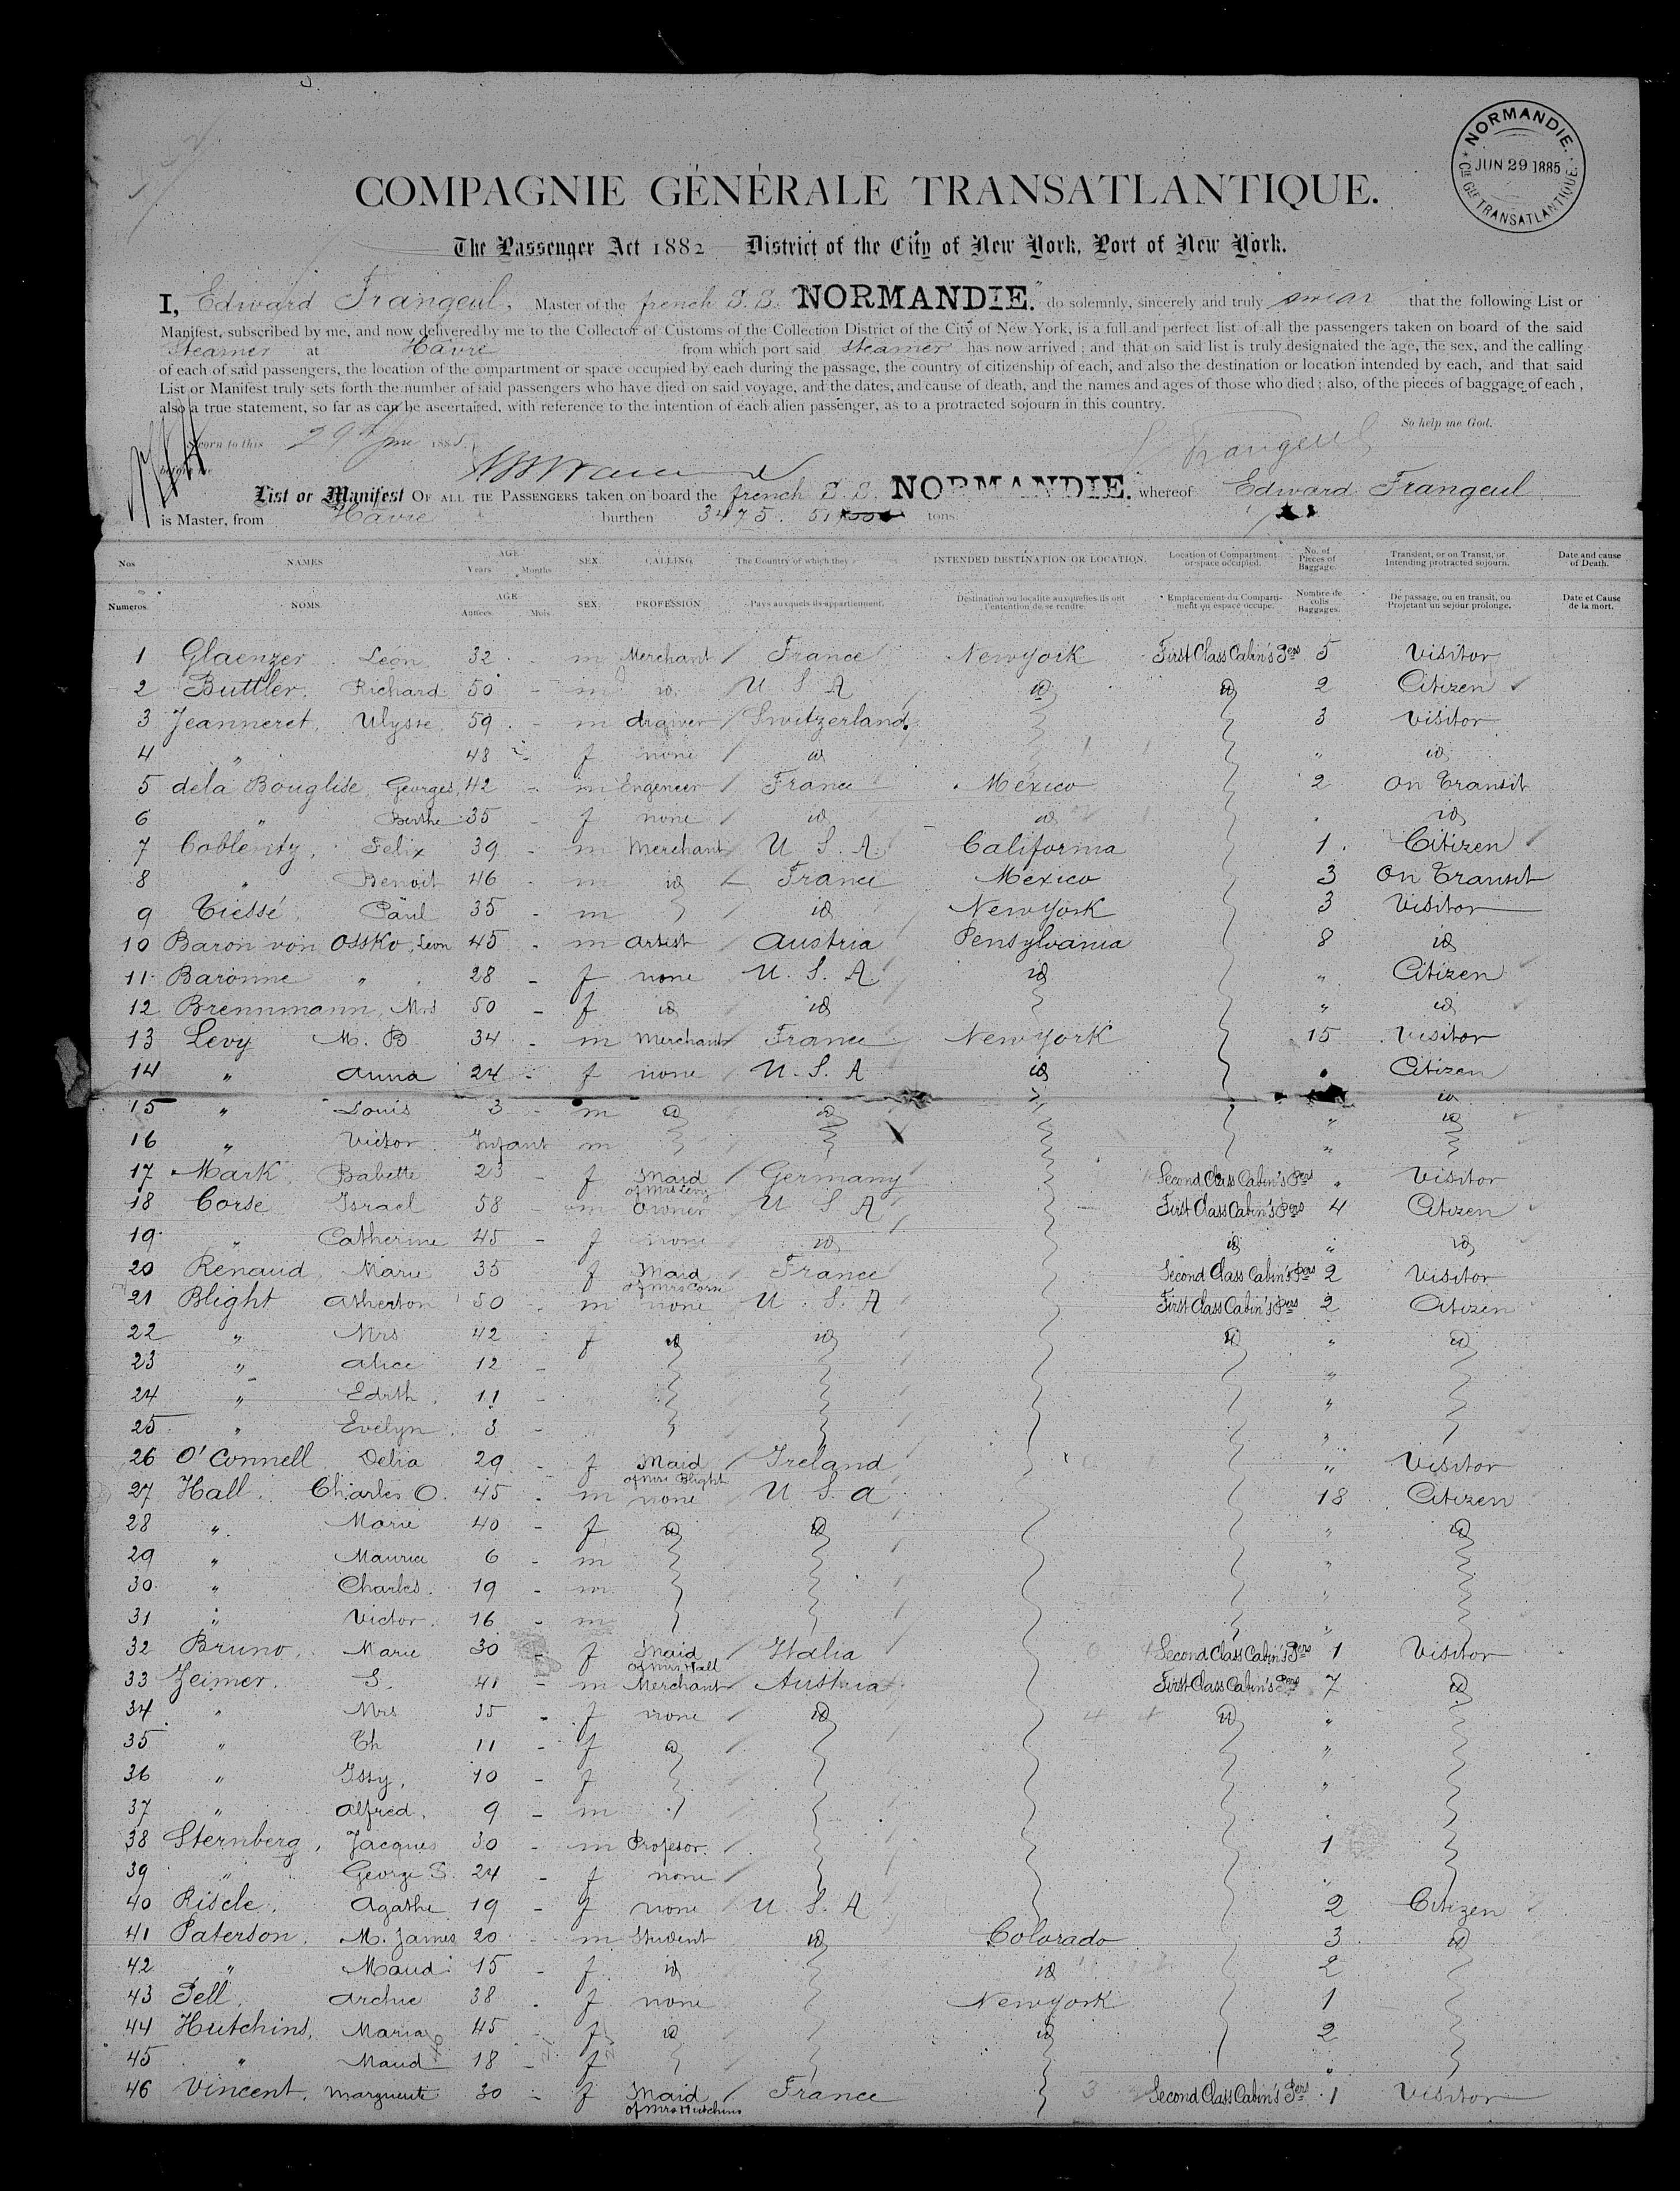 NORMANDIE.
JUN 29 1885
Cie Gle TRANSATLANTIQUE.
COMPAGNIE GÉNÉRALE TRANSATLANTIQUE.
The Passenger Act 1882 District of the City of New York, Port of New York.
I, Edward Frangeul, Master of the french S.S. "NORMANDIE." do solemnly, sincerely and truly swear that the following List or
Manifest, subscribed by me, and now delivered by me to the Collector of Customs of the Collection District of the City of New York, is a full and perfect list of all the passengers taken on board of the said
Steamer at Havre from which port said Steamer has now arrived; and that on said list is truly designated the age, the sex, and the calling
of each of said passengers, the location of the compartment or space occupied by each during the passage, the country of citizenship of each, and also the destination or location intended by each, and that said
List or Manifest truly sets forth the number of said passengers who have died on said voyage, and the dates, and cause of death, and the names and ages of those who died; also, of the pieces of baggage of each,
also a true statement, so far as can be ascertained, with reference to the intention of each alien passenger, as to a protracted sojourn in this country.
So help me God.
Sworn to this 29th June 1885. Frangeul
before me
List or Manifest OF ALL THE PASSENGERS taken on board the french S.S. NORMANDIE. whereof Edward Frangeul
is Master, from Havre burthen 3475. tons.
Nos NAMES AGE Years Months SEX. CALLING The Country of which they INTENDED DESTINATION OR LOCATION. Location of Compartment or space occupied. No. of Pieces of Baggage. Transient, or on Transit, or Intending protracted sojourn. Date and cause of Death.
Numeros. NOMS. AGE Années. Mois. SEX. PROFESSION Pays auxquels ils appartiennent. Destination ou localité auxquelles ils ont l'entention de se rendre. Emplacement du Compartiment ou espace occupe. Nombre de colis Baggages. De passage, ou en transit, ou Projetant un sejour prolonge. Date et Cause de la mort.
1 Glaenzer Léon 32 - m Merchant France New york First Class Cabin's Pers 5 Visitor
2 Buttler. Richard 50 - m id U S A id id 2 Citizen
3 Jeanneret, Ulysse, 59 - m Switzerland. 3 Visitor
4 " 48 - f none id " id
5 de la Bouglise, Georges, 42 - m Engeneer France Mexico 2 On Transit
6 " Berthe 35 - f none id id id
7 Coblentz, Felix 39 - m Merchant U. S. A. California 1. Citizen
8 " Benoit 46 - m id France Mexico 3 On Transit
9 Tiessé Paul 35 - m id New York 3 Visitor
10 Baron von Ossko, Leon 45 - m artist Austria Pensylvania 8 id
11 Baronne " 28 - f none U. S. A. id " Citizen
12 Brennmann, Mrs 50 - f id id " id
13 Levy M. B. 34 - m Merchant France New York 15 Visitor
14 " Anna 24 - f none U. S. A id Citizen
15 " Louis 3 - m id id id
16 " Victor Infant m " id
17 Mark, Babette 23 - f Maid of Mrs Levy Germany Second Class Cabin's Pers " Visitor
18 Corse Israel 58 - m Owner U S A First Class Cabin's Pers 4 Citizen
19 " Catherine 45 - f none id id " id
20 Renaud, Marie 35 f Maid of Mrs Corse France Second Class Cabin's Pers 2 Visitor
21 Blight Atherton 50 - m none U. S. A First Class Cabin's Pers 2 Citizen
22 " Mrs 42 f id id id " id
23 " Alice 12 - "
24 " Edith. 11 - "
25 " Evelyn. 3 - "
26 O'Connell Delia 29 - f Maid of Mrs Blight Ireland " Visitor
27 Hall. Charles O. 45 - m none U S a 18 Citizen
28 " Marie 40 - f id id " id
29 " Maurice 6 - m "
30 " Charles. 19 - m "
31 " Victor. 16 - m "
32 Bruno. Marie 30 - f Maid of Mrs Hall Italia Second Class Cabin's Pers 1 Visitor
33 Zeimer. S. 41 - m Merchant Austria First Class Cabin's Pers 7 id
34 " Mrs 35 - f none id id "
35 " Th 11 - f id "
36 " Issy, 10 - f "
37 " Alfred, 9 - m
38 Sternberg, Jacques 30 - m Profesor. 1
39 " George S. 24 - f none
40 Riscle. Agathe 19 - f none U. S. A 2 Citizen
41 Paterson. M. James 20 - m Student id Colorado 3 id
42 " Maud 15 - f id id 2
43 Pell. Archie 38 - f none New york 1
44 Hutchins, Maria 45 - f id id 2
45 " Maud 18 - f "
46 Vincent. Marguerite 30 - f Maid of Mrs Hutchins France Second Class Cabin's Pers 1 Visitor